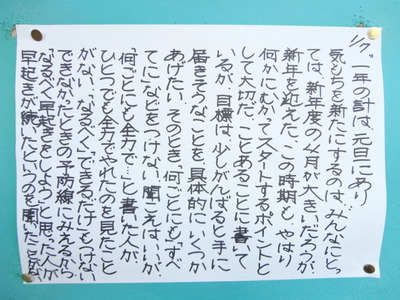 1/7 “一年の計は、元旦にあり
気もちを新たにするのは、みんなにとっ
ては、新年度の4月が大きいだろうが、
新年を迎えた、この時期も、やはり
何かにむかってスタートするポイントと
して大切だ。ことあるごとに書いて
いるが、目標は、少しがんばると手に
届きそうなことを、具体的にいくつか
あげたい。そのとき、「何ごとにも」「すべ
てに」などをつけない。聞こえはいいが、
「何ごとにも全力で…」と書いた人が、
ひとつでも全力でやれたのを見たこと
がない。「なるべく」「できるだけ」もいけない
できなかったときの予防線にみえるから
「なるべく早起きをしよう」と思った人が
早起きが続いたというのを聞いたことがない